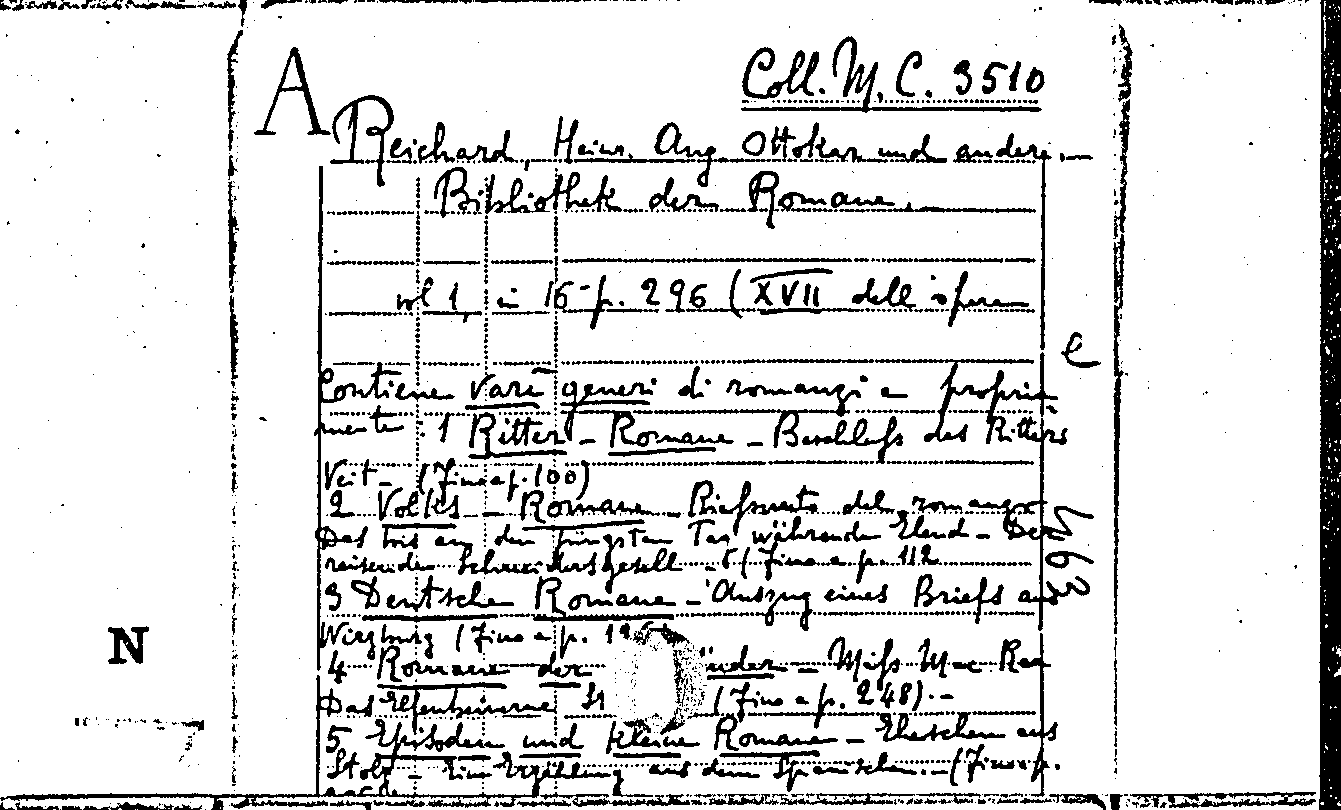 A
Coll. M. C. 3510
Reichard, Heinr. Aug. Ottokar und andere.—
Bibliothek der Romane.—
vol 1, in 16° p. 296 (XVII dell'opera
e
Contiene varî generi di romanzi e propria
mente: 1 Ritter - Romane - Beschluß des Ritters
Veit - (Fino a p. 100)
2 Volks - Romane - del romanzo
Das bis an den jüngsten Tag währende Elend - Der
reisende Schneidersgesell - (Fino a p. 112
3 Deutsche Romane - Auszug eines Briefs aus
(Fino a p.
4 Romane der - Miß Mac Rea
Das (Fino a p. 248).-
5 Episoden und kleine Romane - aus
Stolz - Eine Erzählung aus dem Spanischen.-(Fino a p.
N